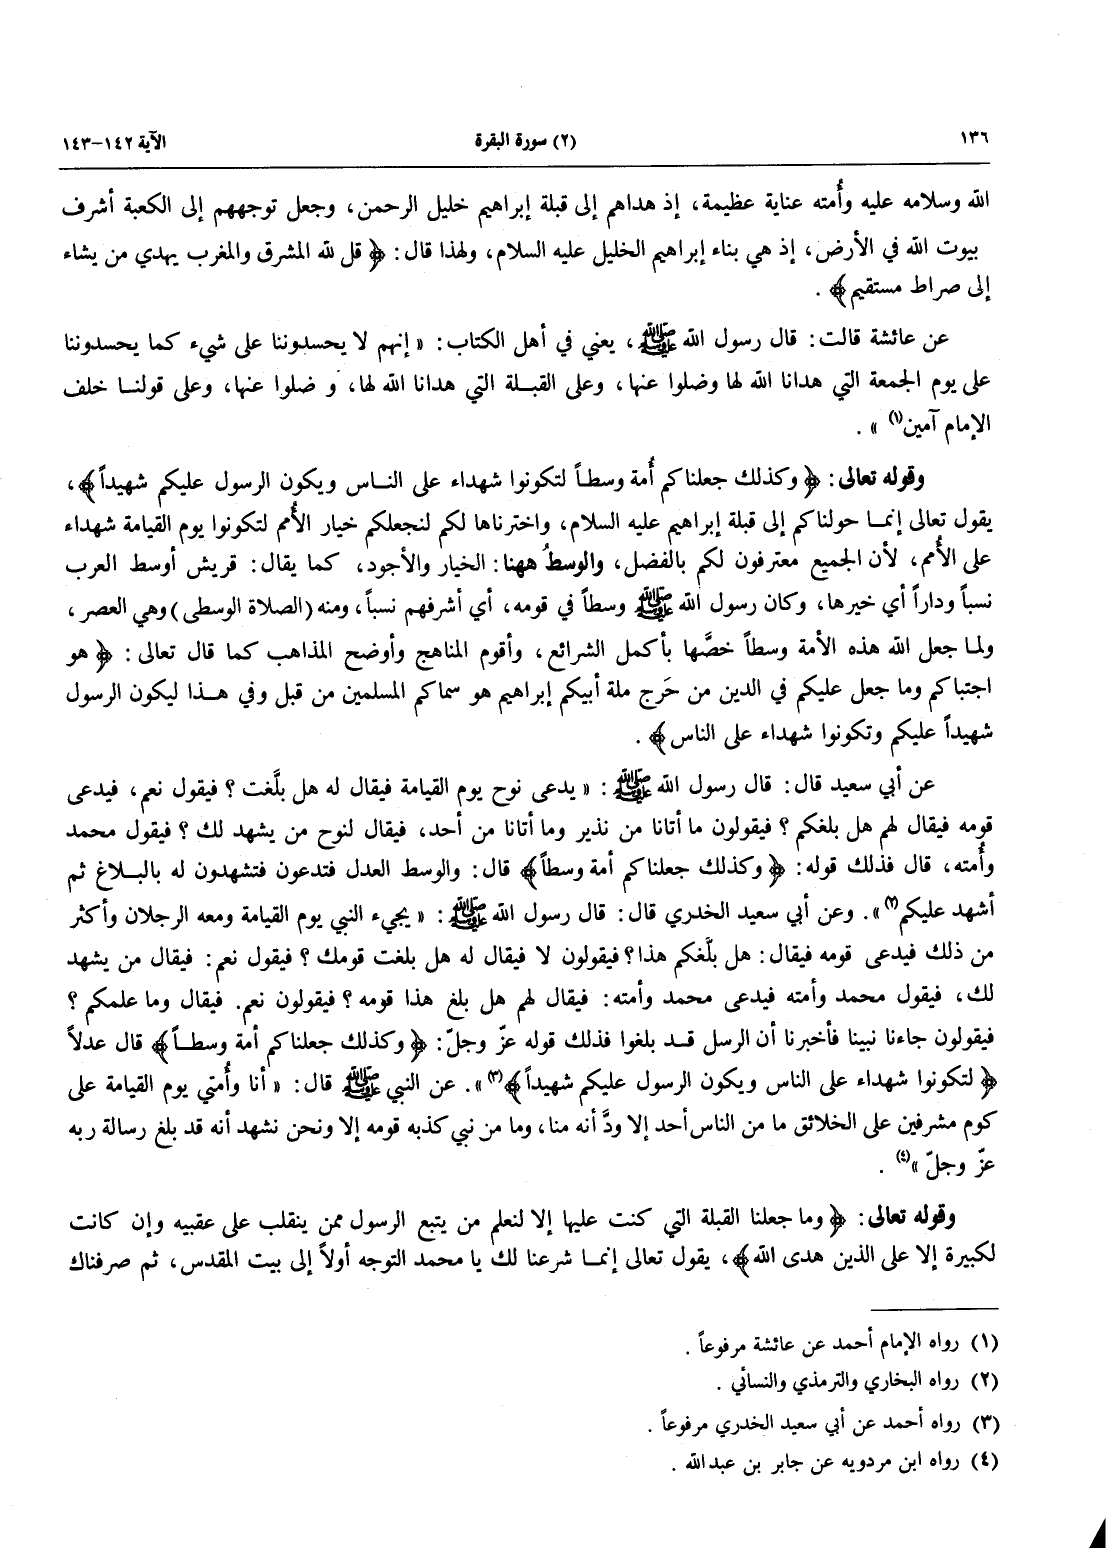 ١٣٦ (٢) سورة البقرة الآية ١٤٢-١٤٣
الله وسلامه عليه وأُمته عناية عظيمة، إذ هداهم إلى قبلة إبراهيم خليل الرحمن، وجعل توجههم إلى الكعبة أشرف
بيوت الله في الأرض، إذ هي بناء إبراهيم الخليل عليه السلام، ولهذا قال: ﴿قل لله المشرق والمغرب يهدي من يشاء
إلى صراط مستقيم﴾ .
عن عائشة قالت: قال رسول الله ﷺ، يعني في أهل الكتاب: « إنهم لا يحسدوننا على شيء كما يحسدوننا
على يوم الجمعة التي هدانا الله لها وضلوا عنها، وعلى القبلة التي هدانا الله لها، و ضلوا عنها، وعلى قولنا خلف
الإمام آمين(١) » .
وقوله تعالى: ﴿وكذلك جعلناكم أُمة وسطاً لتكونوا شهداء على الناس ويكون الرسول عليكم شهيداً﴾،
يقول تعالى إنما حولناكم إلى قبلة إبراهيم عليه السلام، واخترناها لكم لنجعلكم خيار الأُمم لتكونوا يوم القيامة شهداء
على الأُمم، لأن الجميع معترفون لكم بالفضل، والوسطُ ههنا: الخيار والأجود، كما يقال: قريش أوسط العرب
نسباً وداراً أي خيرها، وكان رسول الله ﷺ وسطاً في قومه، أي أشرفهم نسباً، ومنه (الصلاة الوسطى) وهي العصر،
ولما جعل الله هذه الأمة وسطاً خصَّها بأكمل الشرائع، وأقوم المناهج وأوضح المذاهب كما قال تعالى: ﴿هو
اجتباكم وما جعل عليكم في الدين من حَرج ملة أبيكم إبراهيم هو سماكم المسلمين من قبل وفي هذا ليكون الرسول
شهيداً عليكم وتكونوا شهداء على الناس﴾ .
عن أبي سعيد قال: قال رسول الله ﷺ: « يدعى نوح يوم القيامة فيقال له هل بلَّغت ؟ فيقول نعم، فيدعى
قومه فيقال لهم هل بلغكم ؟ فيقولون ما أتانا من نذير وما أتانا من أحد، فيقال لنوح من يشهد لك ؟ فيقول محمد
وأُمته، قال فذلك قوله: ﴿وكذلك جعلناكم أمة وسطاً﴾ قال: والوسط العدل فتدعون فتشهدون له بالبلاغ ثم
أشهد عليكم(٢)». وعن أبي سعيد الخدري قال: قال رسول الله ﷺ: « يجيء النبي يوم القيامة ومعه الرجلان وأكثر
من ذلك فيدعى قومه فيقال: هل بلَّغكم هذا؟ فيقولون لا فيقال له هل بلغت قومك ؟ فيقول نعم: فيقال من يشهد
لك، فيقول محمد وأمته فيدعى محمد وأمته: فيقال لهم هل بلغ هذا قومه ؟ فيقولون نعم. فيقال وما علمكم ؟
فيقولون جاءنا نبينا فأخبرنا أن الرسل قد بلغوا فذلك قوله عزّ وجلّ: ﴿وكذلك جعلناكم أمة وسطاً﴾ قال عدلاً
﴿لتكونوا شهداء على الناس ويكون الرسول عليكم شهيداً﴾(٣)». عن النبي ﷺ قال: « أنا وأُمتي يوم القيامة على
كوم مشرفين على الخلائق ما من الناس أحد إلا ودَّ أنه منا، وما من نبي كذبه قومه إلا ونحن نشهد أنه قد بلغ رسالة ربه
عزّ وجلّ »(٤) .
وقوله تعالى: ﴿وما جعلنا القبلة التي كنت عليها إلا لنعلم من يتبع الرسول ممن ينقلب على عقبيه وإن كانت
لكبيرة إلا على الذين هدى الله﴾، يقول تعالى إنما شرعنا لك يا محمد التوجه أولاً إلى بيت المقدس، ثم صرفناك
(١) رواه الإمام أحمد عن عائشة مرفوعاً .
(٢) رواه البخاري والترمذي والنسائي .
(٣) رواه أحمد عن أبي سعيد الخدري مرفوعاً .
(٤) رواه ابن مردويه عن جابر بن عبدالله .